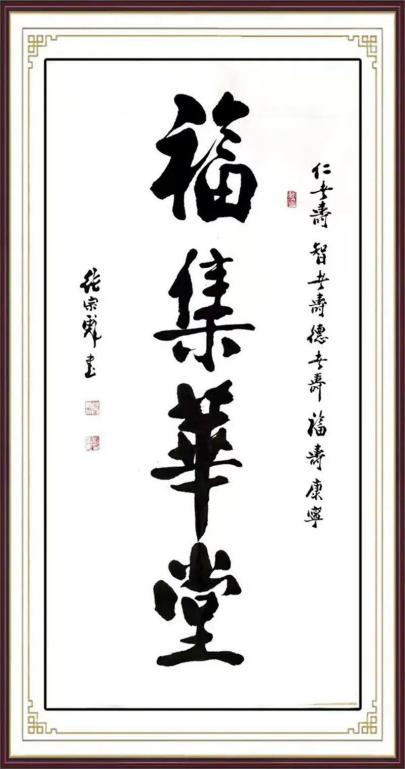 仁者壽 智者壽 德者壽 福壽康寧
福集華堂
張宗彪書